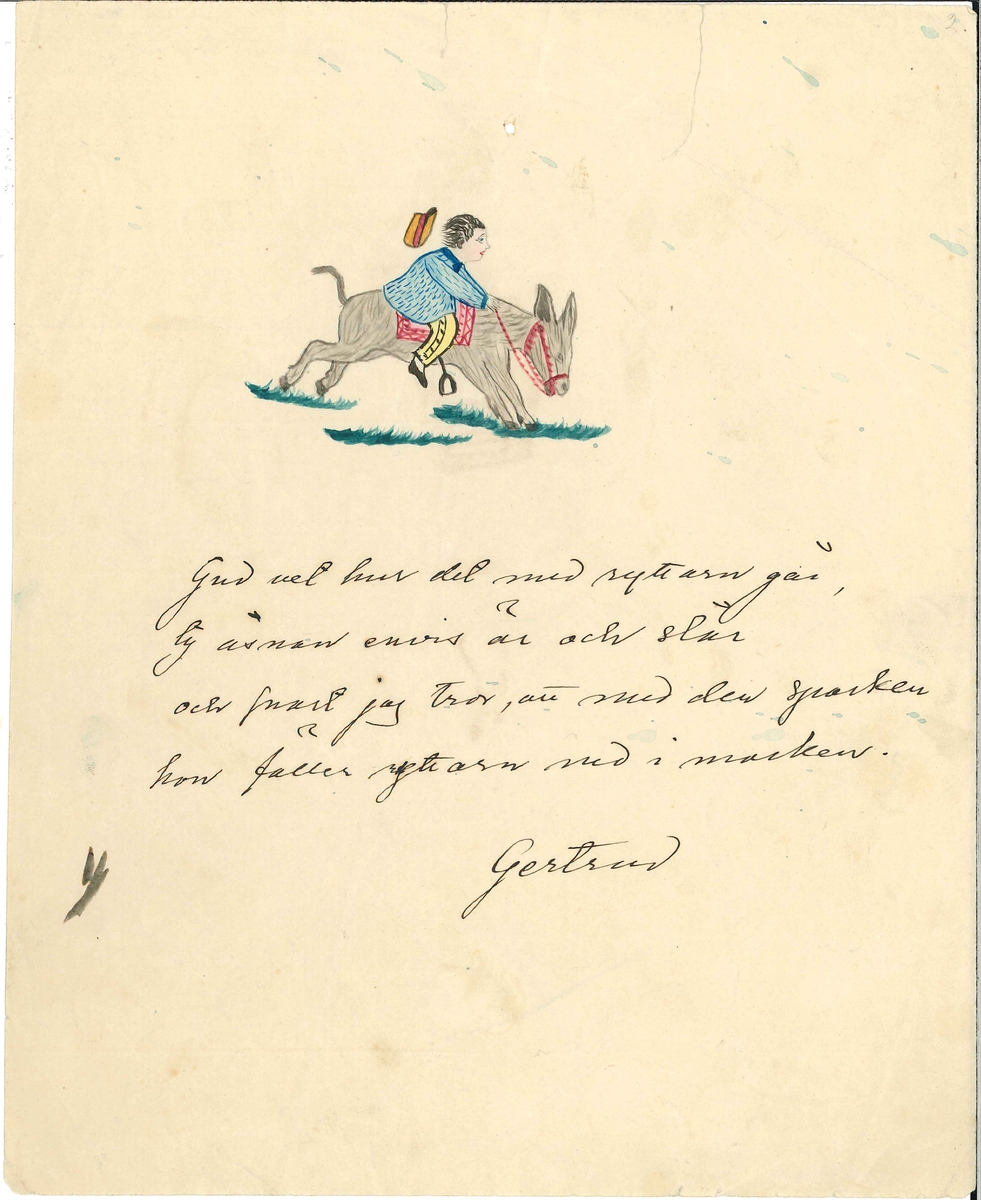 2
Gud vet hur det med ryttarn går,
ty åsnan envis är och slår
och snart jag tror, att med den sparken
hon fäller ryttarn ned i marken.
Gertrud